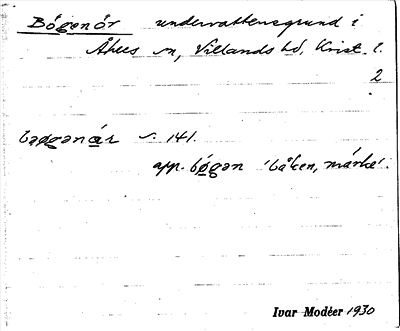 Bógenór undervattensgrund i
Åhus sn, Villands hd, Krist. l.
2
s. 141.
app. bógən 'båken, märke'.
Ivar Modéer 1930